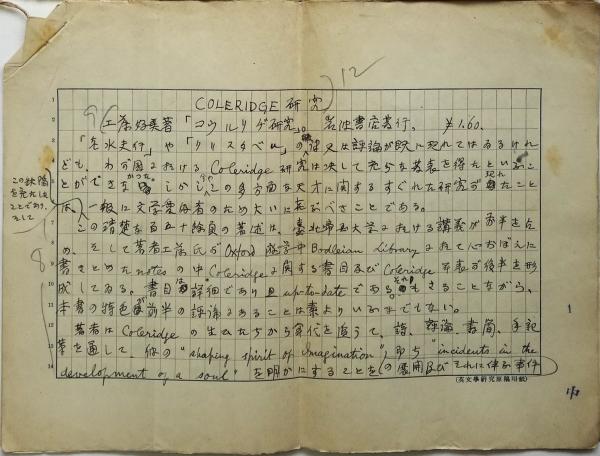 12
COLERIDGE 研究
9
工藤好美著「コウルリヂ研究」。岩波書店発行、¥1.60.
「老水夫行」や「クリスタベル」の 訳又は評論が既に現れてはゐるけれ
ども、わが国に於ける Coleridge 研究は決して充分な発表を得たといふこ
とができなかつた。しかしこの多方面な天才に関するすぐれた研究が現れたこと
は、一般に文学愛好者のため大いに喜ぶべきことである。
この欠陥
を充たす
ことであり、
そして
この清楚な 著述は、臺北帝国大学に於ける講義が前半を占
め、そして著者工藤氏が Oxford 遊学中 Bodleian Library に於て心おぼえに
8
書きとめた notes の中 Coleridge に関する書目及び Coleridge 年表が後半を形
成してゐる。書目は詳細であり且 up-to-date であることもさることながら、
本書の特色が前半の評論にあることは素よりいふまでもない。
著者は Coleridge の生ひたちから年代を追うて、詩、評論、書簡、手記
等を通して、彼の "shaping spirit of Imagination", 即ち "incidents in the
development of a soul" を明かにすることを(の展開及びそれに伴ふ事件
(英文學研究原稿用紙)
1
1
2
3
4
5
6
7
8
9
10
11
12
13
14